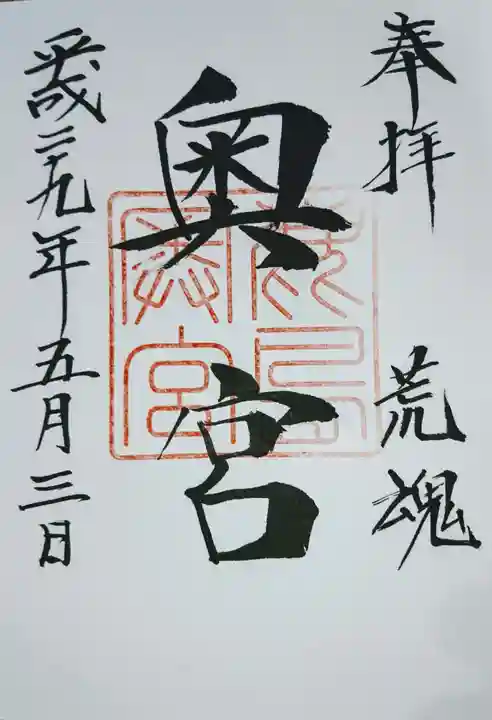 奉拝 荒魂
奥宮
鹿島奥宮
平成二十九年五月三日